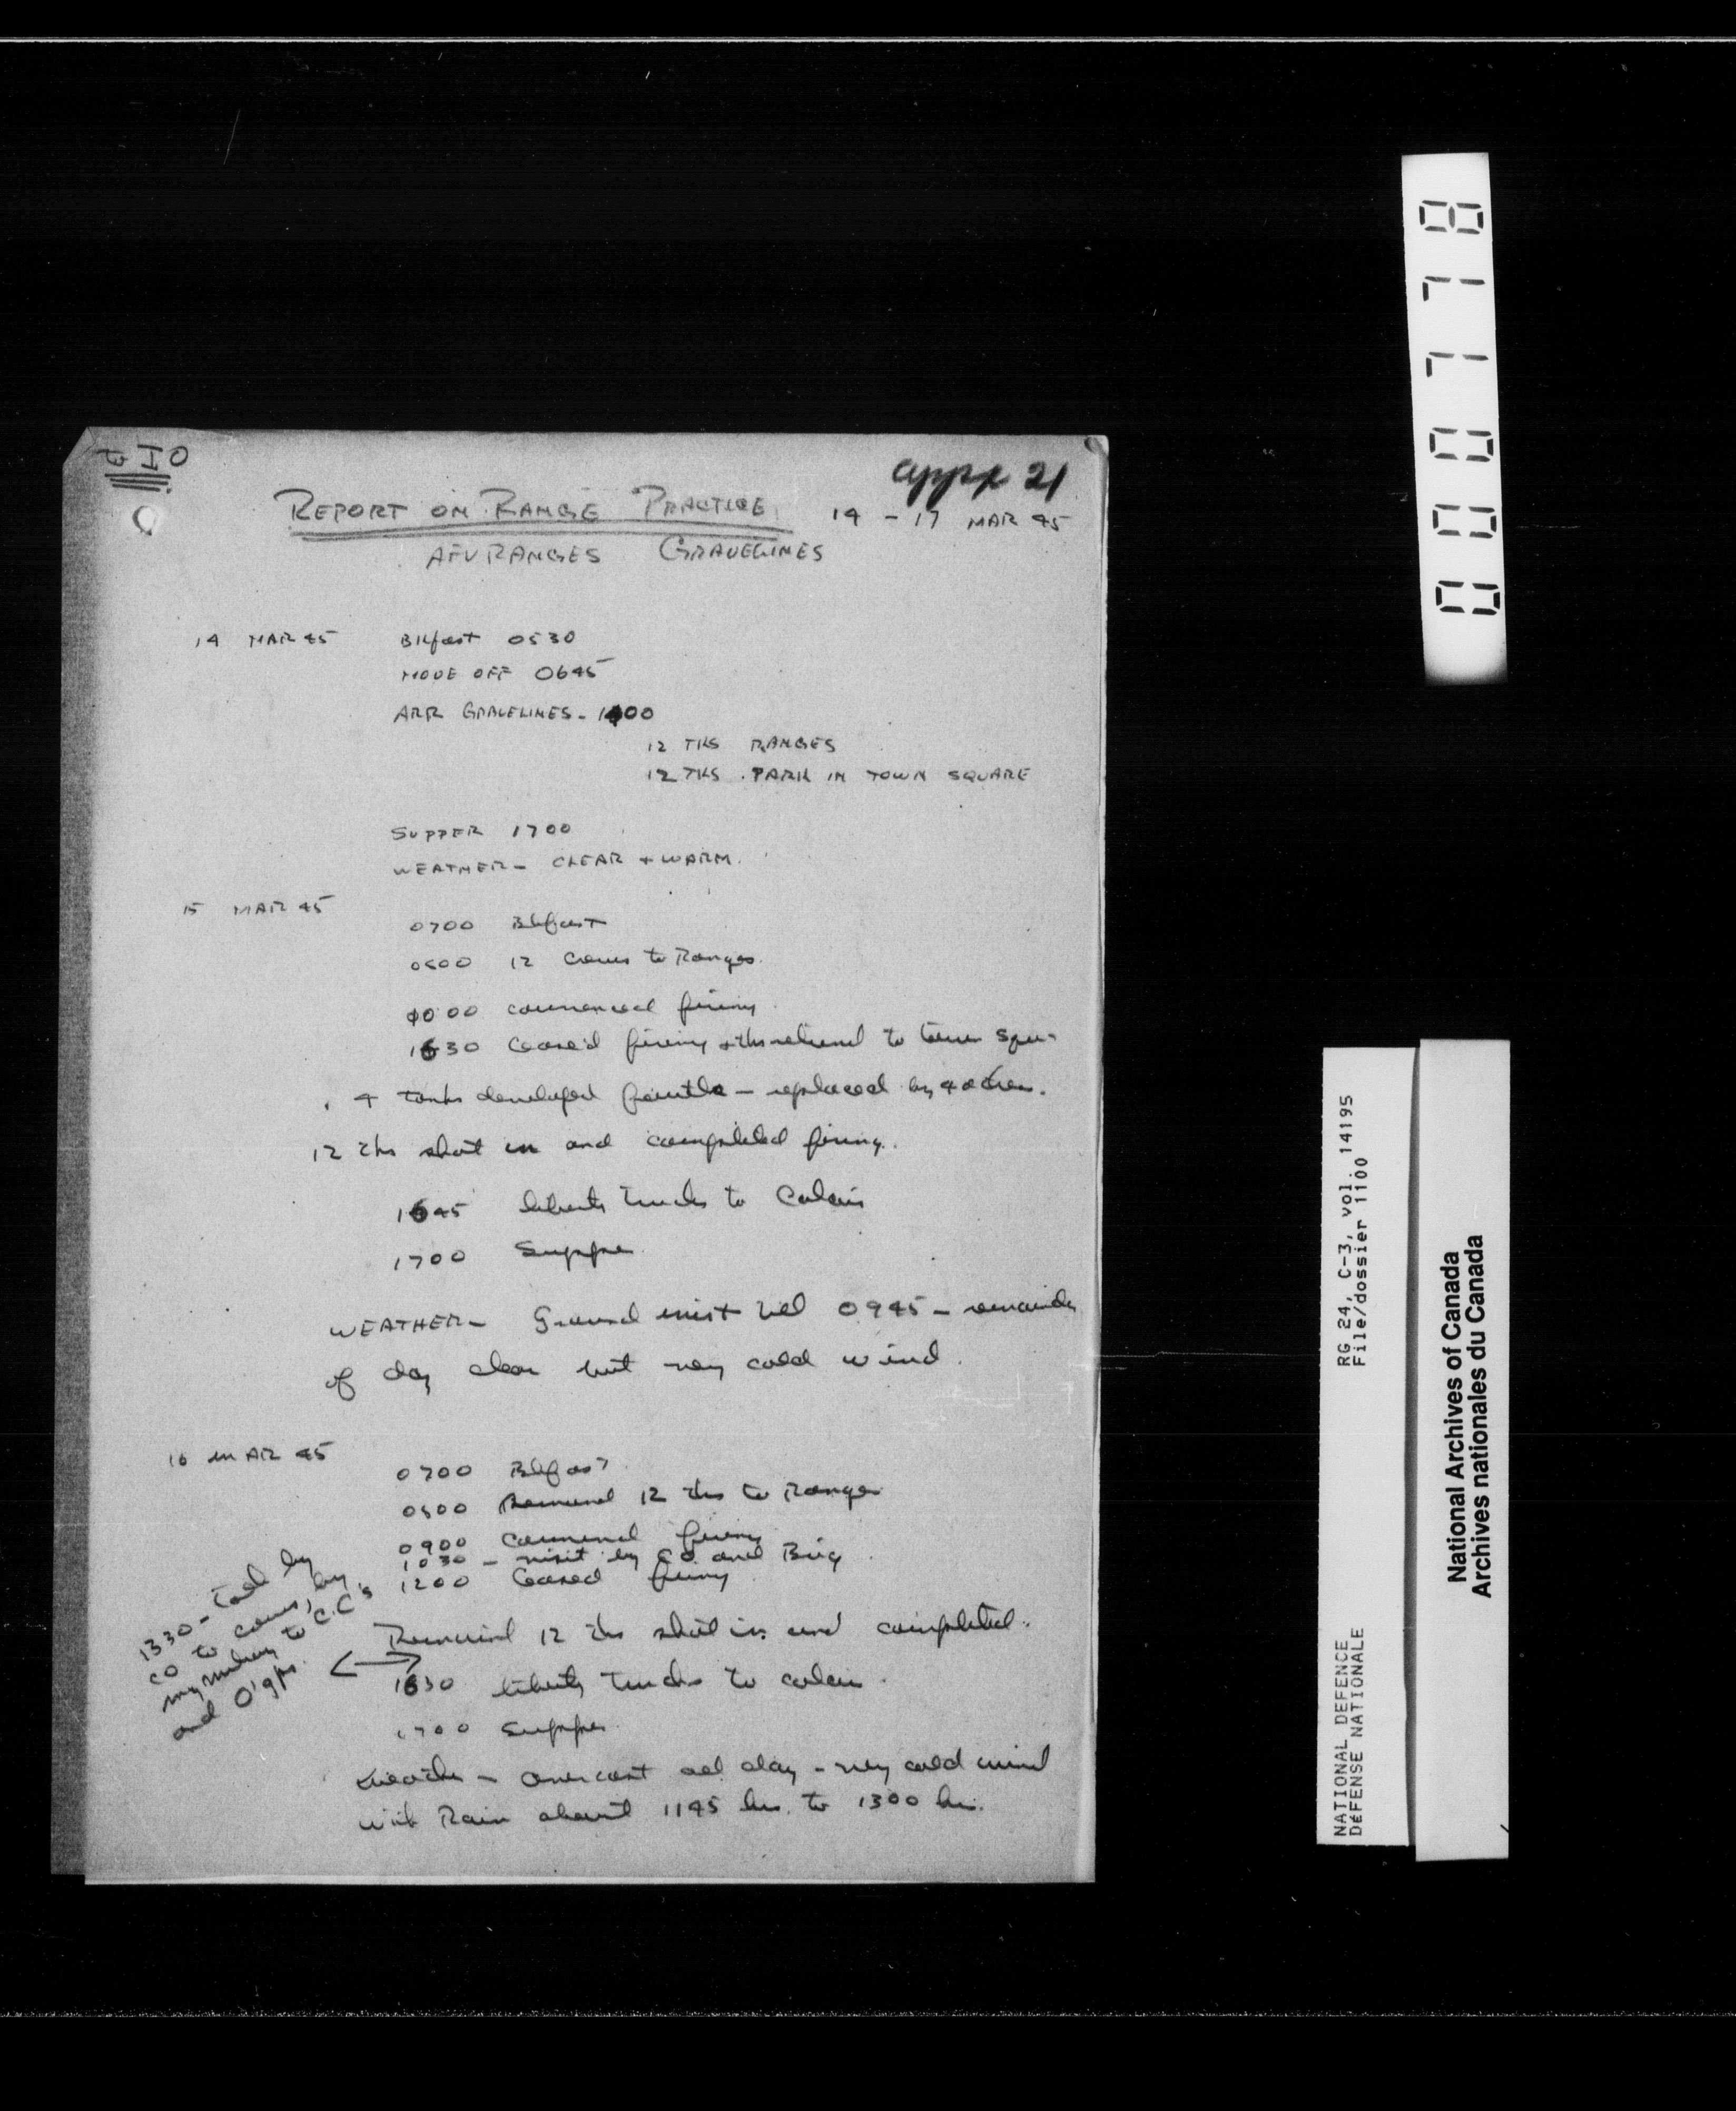 to IO
appx 21
REPORT ON RANGE PRACTICE 14 - 17 MAR 45
AFV RANGES GRAVELINES
14 MAR 45 Bkfast 0530
MOVE OFF 0645
ARR GRAVELINES - 1400
12 TKS RANGES
12 TKS. PARK IN TOWN SQUARE
SUPPER 1700
WEATHER - CLEAR + WARM.
15 MAR 45
0700 Bkfast
0800 12 crews to Ranges.
0000 commenced firing.
1630 Ceased firing + tks returned to town
4 tanks developed faults - replaced by 4 others.
12 tks shot in and completed firing.
1645 liberty trucks to Calais
1700 Supper
WEATHER - Ground mist till 0945 - remainder
of day clear but very cold wind.
16 MAR 45
0700 Bkfast
0800 Remaind 12 tks to Ranges
0900 Commencd firing
1030 - visit by CO. and Brig.
1200 Ceased firing
1330 - Talk by
CO to crews, by
myself to C.C's
and O'gprs.
Remaind 12 tks shot in and completed.
1630 liberty trucks to calais.
1700 Supper.
Weather - overcast all day - very cold wind
with Rain about 1145 hrs. to 1300 hrs.
0000778
RG 24, C-3, vol. 14195
File/dossier 1100
NATIONAL DEFENCE
DéFENSE NATIONALE
National Archives of Canada
Archives nationales du Canada